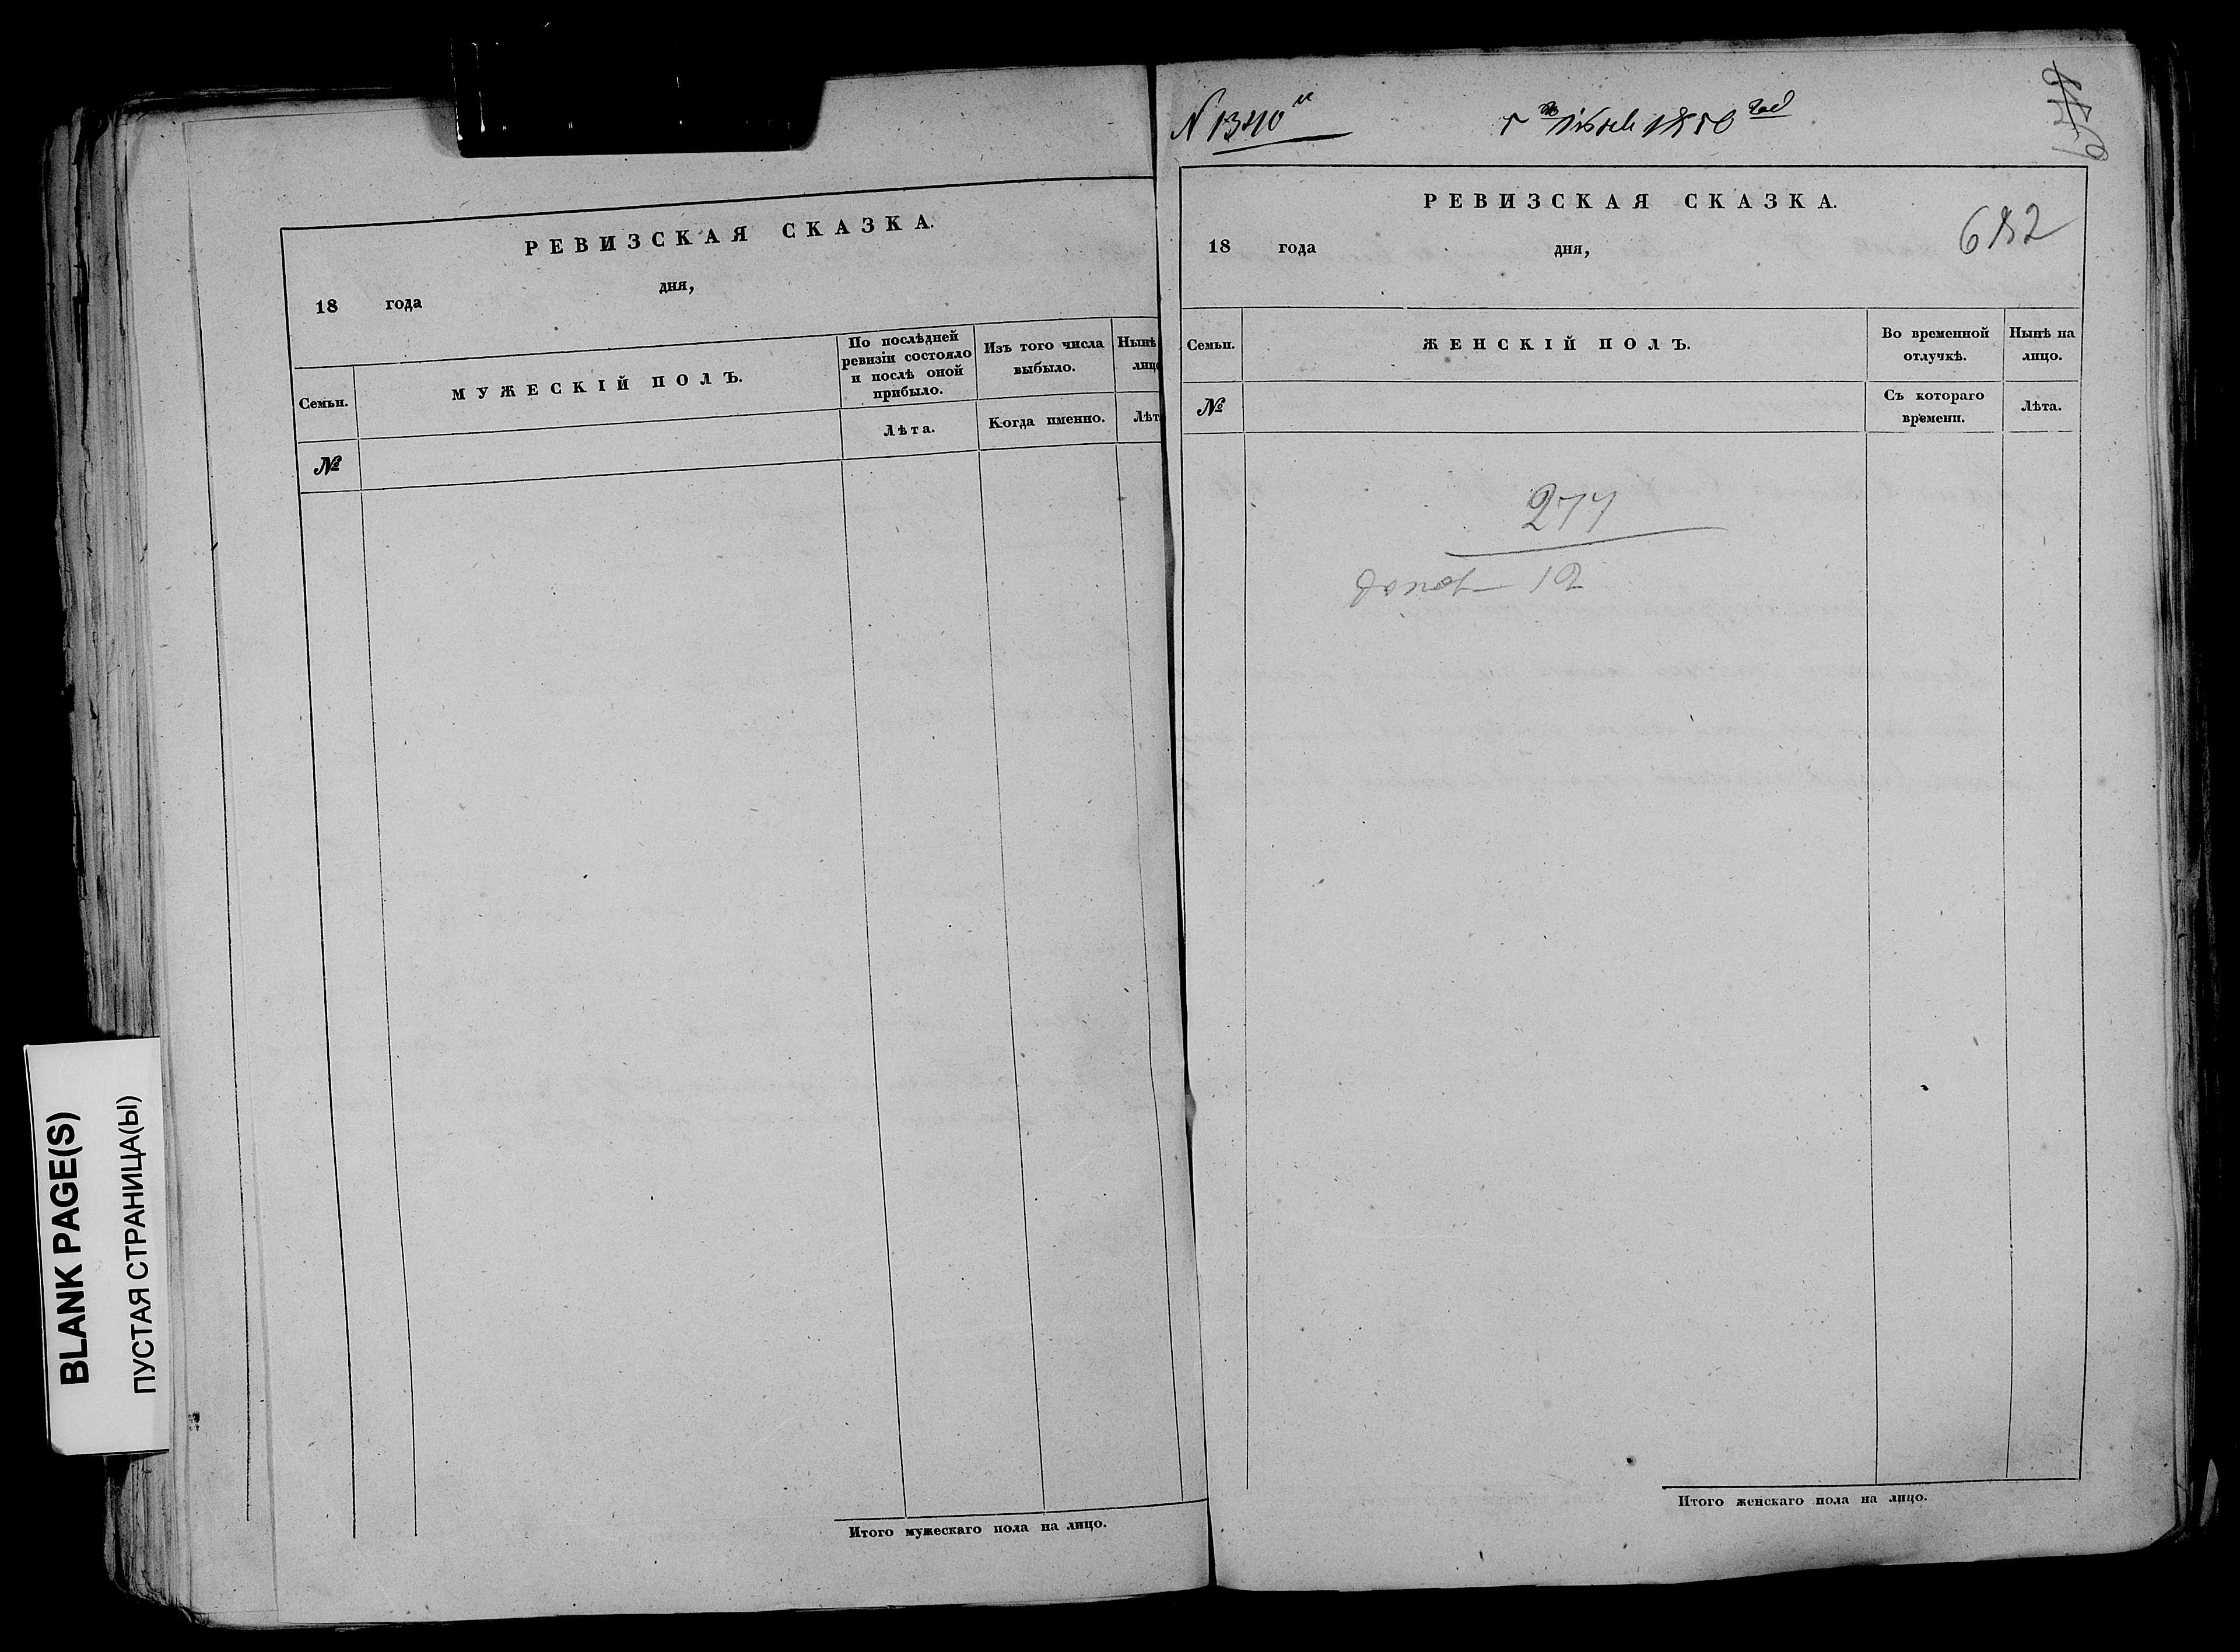 РЕВИЗСКАЯ СКАЗКА.
18 года дня,
Семьи.
МУЖЕСКІЙ ПОЛЪ.
По послѣдней
ревизіи состояло
и послѣ оной
прибыло.
Изъ того числа
выбыло.
Нынѣ
лицо
№
Лѣта.
Когда именно.
Лѣт
Итого мужескаго пола на лицо.
BLANK PAGE(S)
ПУСТАЯ СТРАНИЦА(Ы)
N 1340
1850
РЕВИЗСКАЯ СКАЗКА.
682
18 года дня,
Семьи.
ЖЕНСКІЙ ПОЛЪ.
Во временной
отлучкѣ.
Нынѣ на
лицо.
№
Съ котораго
времени.
Лѣта.
Итого женскаго пола на лицо.